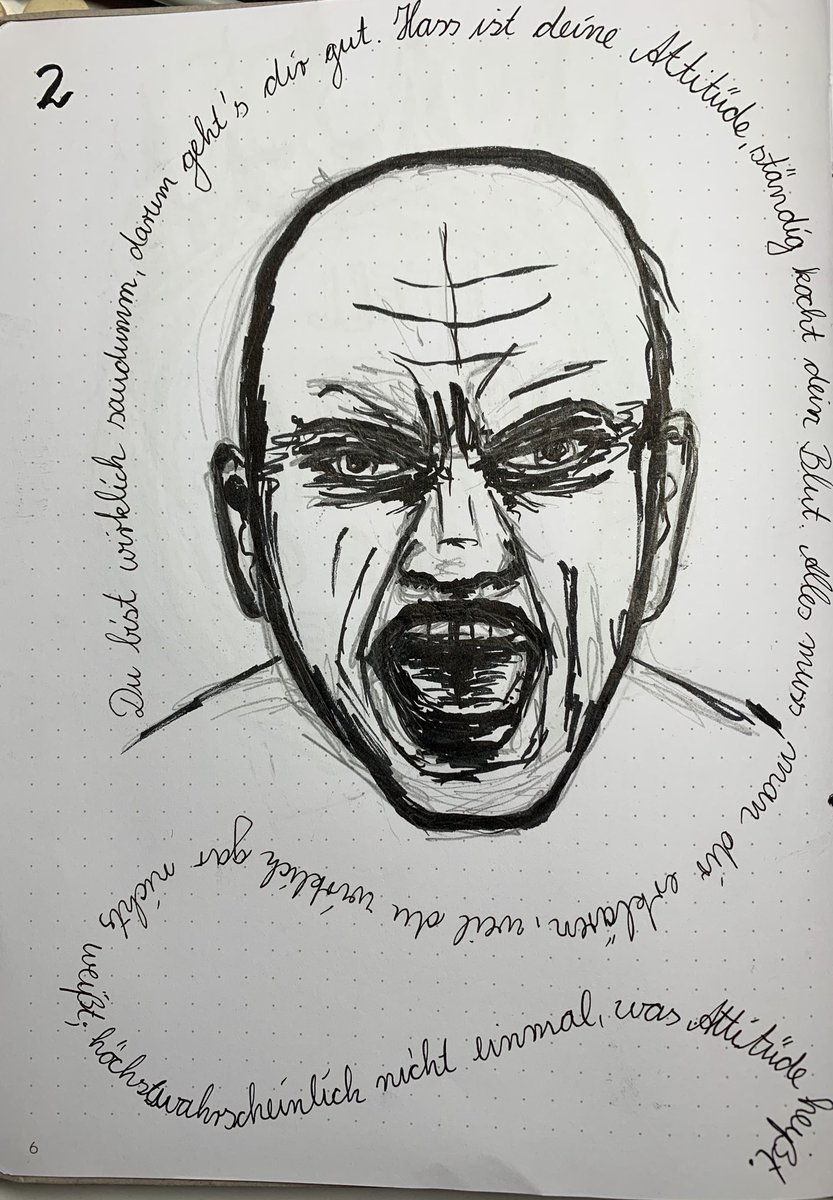 2
Du bist wirklich saudumm, darum geht's dir gut. Hass ist deine Attitüde, ständig kocht dein Blut. Alles muss man dir erklären, weil du wirklich gar nichts weißt; höchstwahrscheinlich nicht einmal, was Attitüde heißt!
6